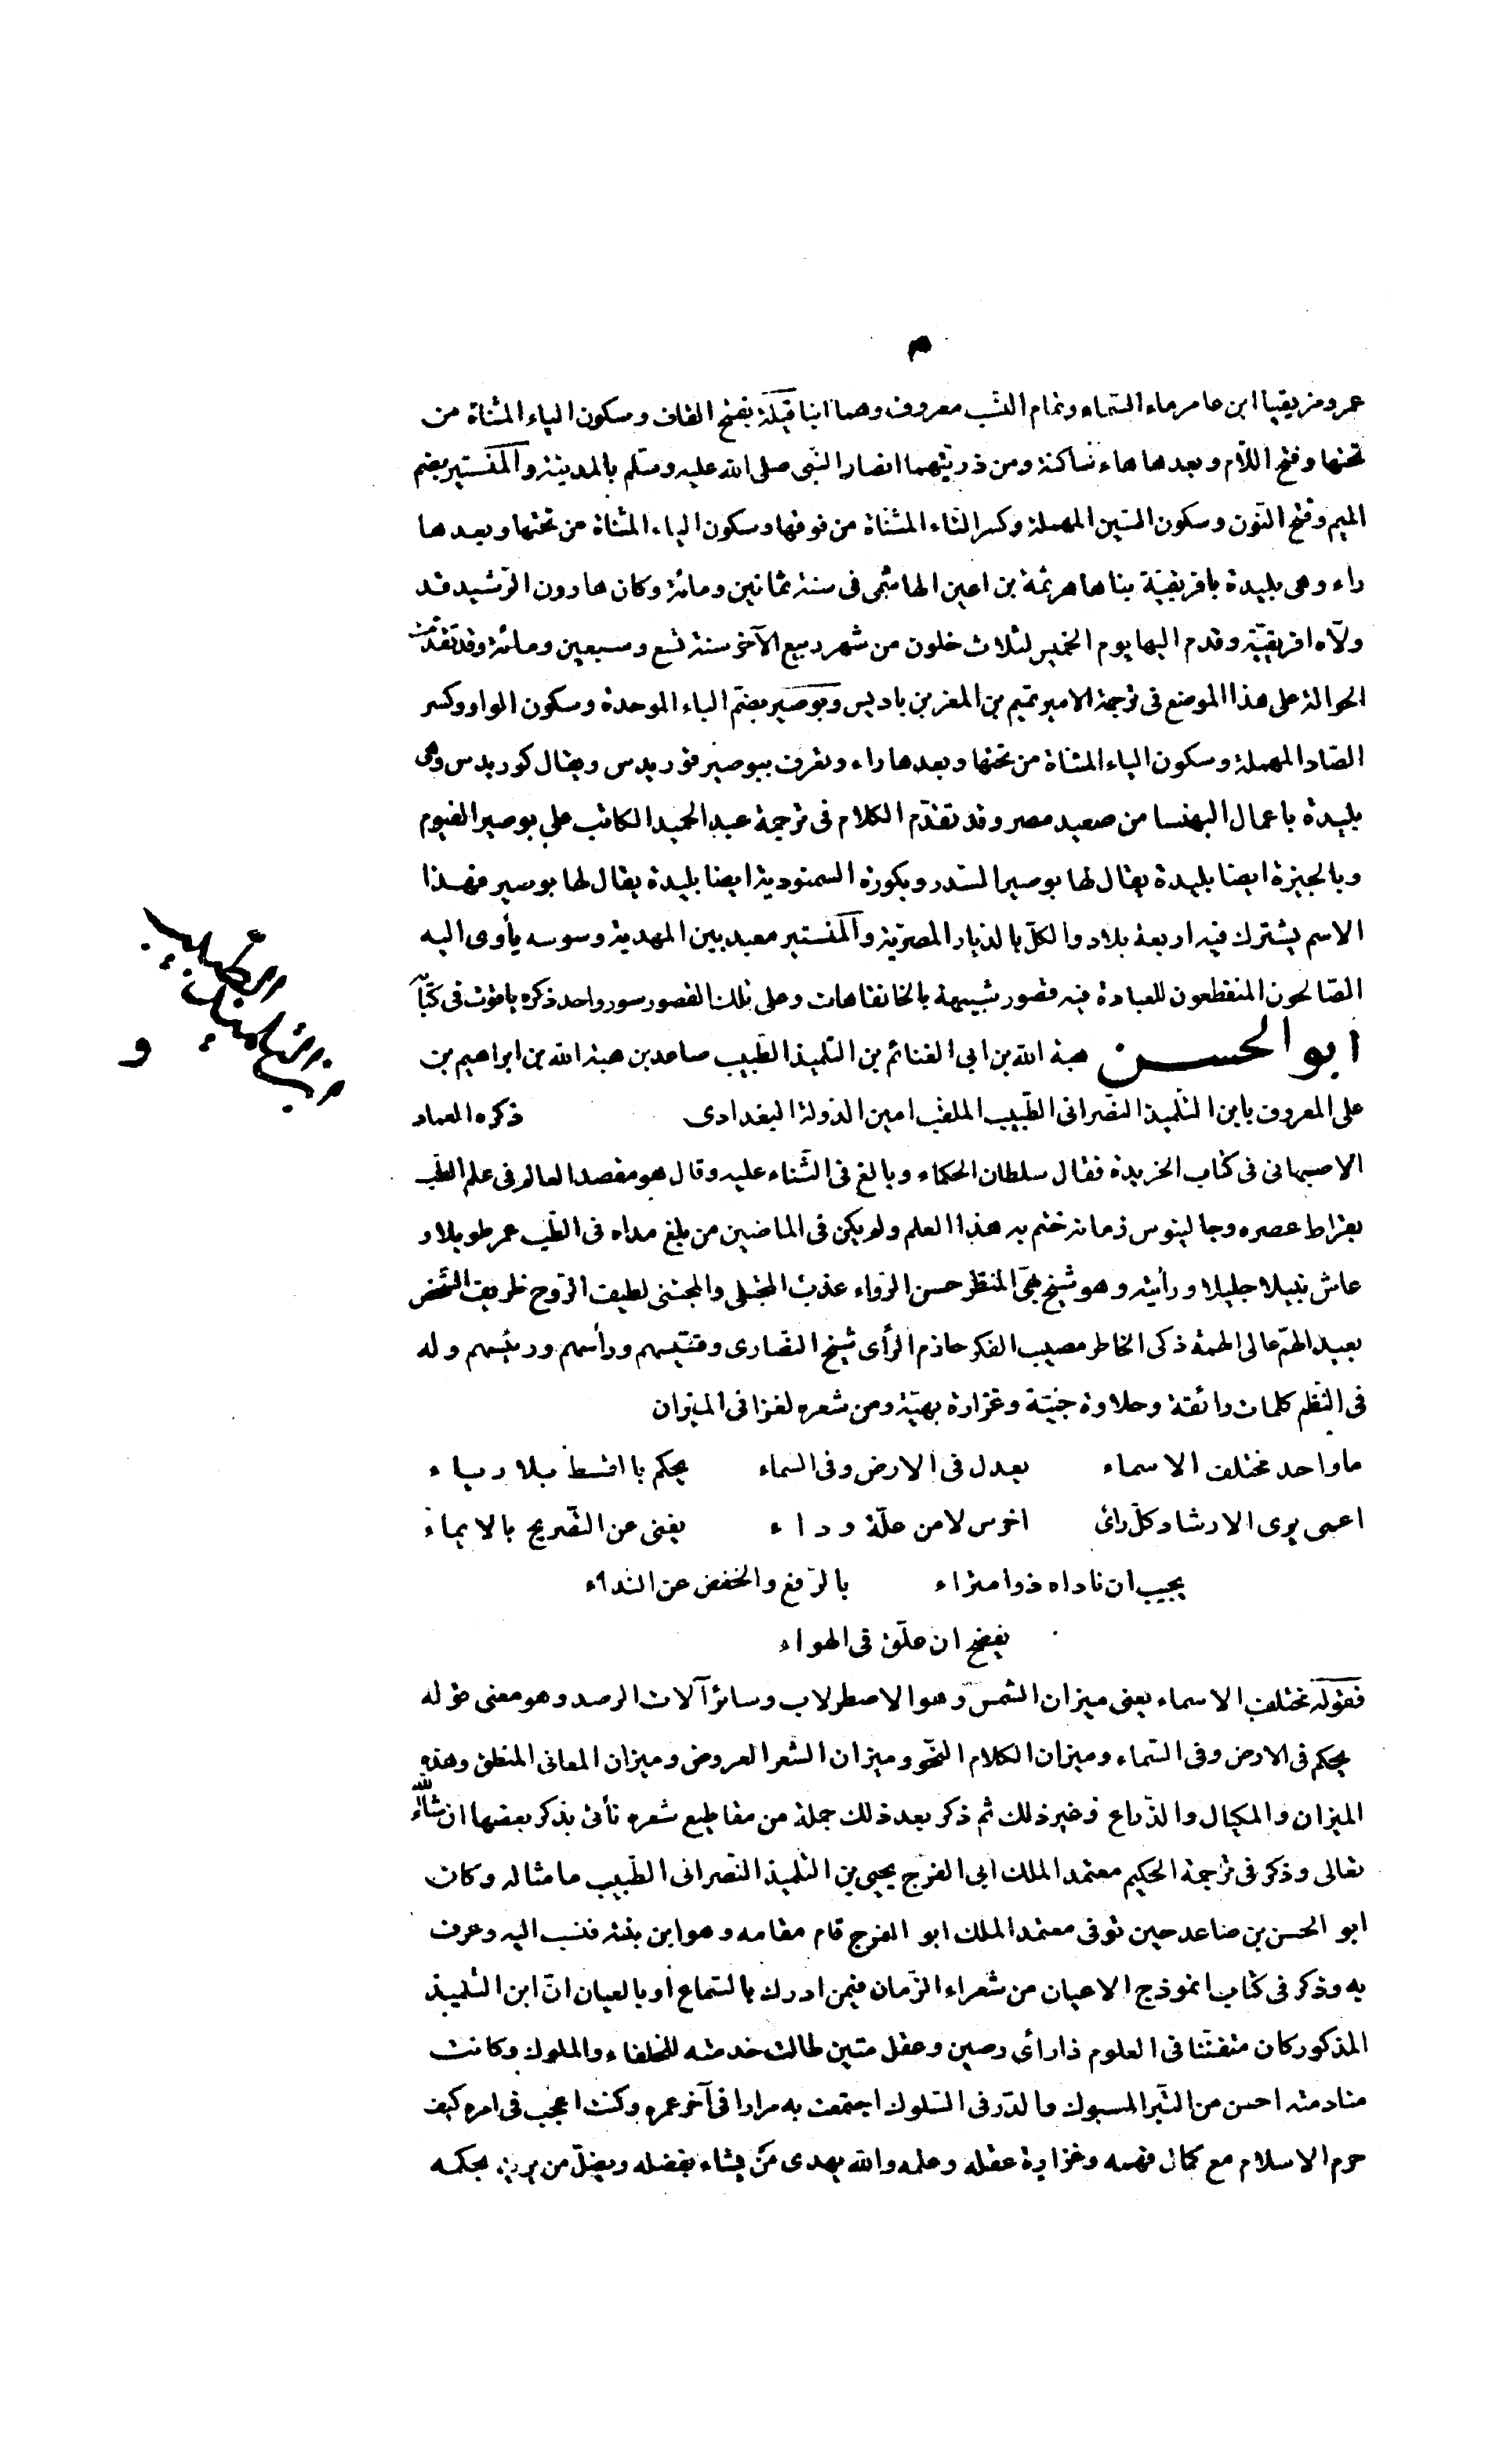 عمرو مزيقيا ابن عامر ماء السّماء وتمام النسّب معروف وهما ابنا قيلة بفتح القاف وسكون الياء المثناة من
تحتها وفتح اللّام وبعدها هاء ساكنة ومن ذريّتهما انصار النّبى صلى الله عليه وسلم بالمدينة والمنستير بضم
الميم وفتح النّون وسكون السّين المهملة وكسر التاء المثناة من فوقها وسكون الياء المثناة من تحتها وبعدها
راء وهى بليدة بافريقيّة بناها هرثمة بن اعين الهاشمى فى سنة ثمانين ومائة وكان هارون الرّشيد قد
ولّاه افريقيّة وقدم اليها يوم الخميس لثلاث خلون من شهر ربيع الآخر سنة تسع وسبعين ومائة وقد تقدّمت
الحوالة على هذا الموضع فى ترجمة الامير تميم بن المعز بن باديس وبوصير بضمّ الباء الموحدة وسكون الواو وكسر
الصّاد المهملة وسكون الياء المثناة من تحتها وبعدها راء وتعرف ببوصير قوريدس ويقال كوريدس وهى
بليدة باعمال البهنسا من صعيد مصر وقد تقدّم الكلام فى ترجمة عبد الحميد الكاتب على بوصير الفيوم
وبالجيزة ايضا بليدة يقال لها بوصير السّدر وبكورة السمنودية ايضا بليدة يقال لها بوصير فهذا
الاسم يشترك فيه اربعة بلاد والكلّ بالديار المصريّة والمنستير معبد بين المهدية وسوسه يأوى اليه
الصّالحون المنقطعون للعبادة فيه قصور شبيهة بالخانقاهات وعلى تلك القصور سور واحد ذكره ياقوت فى كتابه
ابو الحسن هبة الله بن ابى الغنائم بن التلميذ الطّبيب صاعد بن هبة الله بن ابراهيم بن
على المعروف بابن التلميذ النصّرانى الطّبيب الملقب امين الدّولة البغدادى ذكره العماد
الاصبهانى فى كتاب الخريدة فقال سلطان الحكماء وبالغ فى الثّناء عليه وقال هو مقصد العالم فى علم الطبّ
بقراط عصره وجالينوس زمانه ختم به هذا العلم ولم يكن فى الماضين من بلغ مداه فى الطّب عمر طويلا و
عاش نبيلا جليلا ورأيته وهو شيخ بهىّ المنظر حسن الرّواء عذب المجتلى والمجتنى لطيف الرّوح ظريف الشّخص
بعيد الهمّ عالى الهمة ذكى الخاطر مصيب الفكر حازم الرّأى شيخ النصّارى وقسّيسهم ورأسهم ورئيسهم وله
فى النّظم كلمات رائقة وحلاوة جنيّة وغزارة بهيّة ومن شعره لغزا فى الميزان
ما واحد مختلف الاسماء يعدل فى الارض وفى السماء يحكم باالقسط بلا رياء
اعمى يرى الارشاد كلّ رائ اخرس لا من علّة وداء يغنى عن التصّريح بالايماء
يجيب ان ناداه ذوا متراء بالرّفع والخفض عن النداء
يفصح ان علّق فى الهواء
فقوله مختلف الاسماء يعنى ميزان الشّمس وهو الاصطرلاب وسائر آلات الرصد وهو معنى قوله
يحكم فى الارض وفى السّماء وميزان الكلام النحّو وميزان الشّعر العروض وميزان المعانى المنطق وهذه
الميزان والمكيال والذّراع وغير ذلك ثم ذكر بعد ذلك جملة من مقاطيع شعره نأتى بذكر بعضها ان شاء الله
تعالى وذكر فى ترجمة الحكيم معتمد الملك ابى الفرج يحيى بن التلميذ النصّرانى الطّبيب ما مثاله وكان
ابو الحسن بن صاعد حين توفى معتمد الملك ابو الفرج قام مقامه وهو ابن بنته فنسب اليه وعرف
به وذكر فى كتاب انموذج الاعيان من شعراء الزّمان فيمن ادرك بالسّماع او بالعيان انّ ابن التلميذ
المذكور كان متفننّا فى العلوم ذا رأى رصين وعقل متين طالت خدمته للخلفاء والملوك وكانت
منادمته احسن من التّبر المسبوك والدّر فى السّلوك اجتمعت به مرارا فى آخر عمره وكنت اعجب فى امره كيف
حرم الاسلام مع كمال فهمه وغزارة عقله وعلمه والله يهدى من يشاء بفضله ويضلّ من يريد بحكمه
ابن التلميذ الطّبيب
و